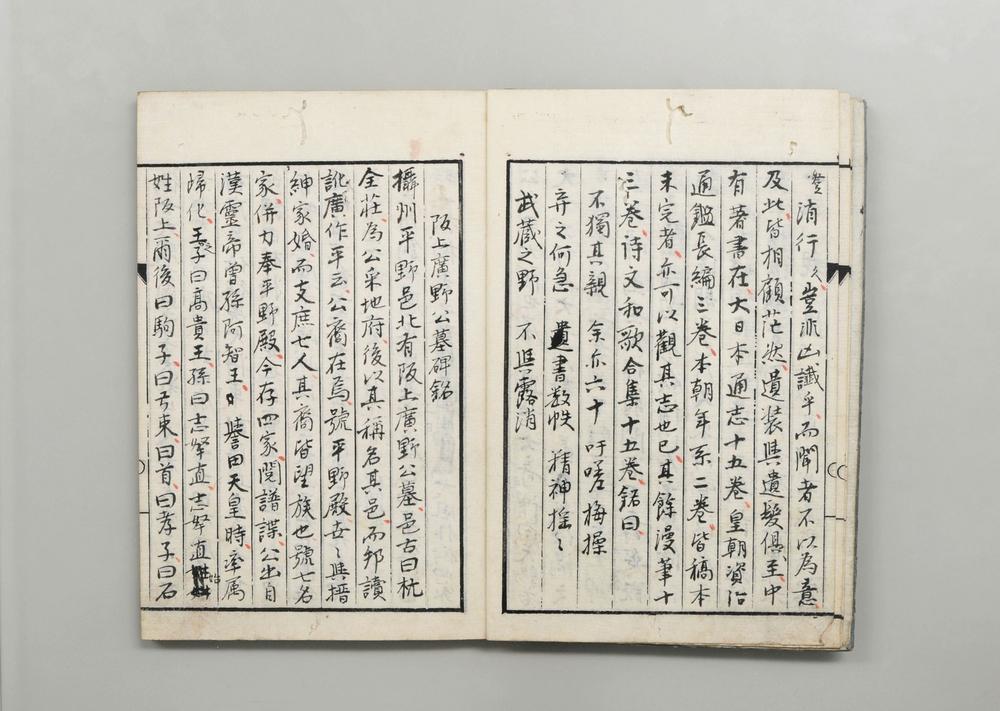 消行久豈非凶讖乎而聞者不以為意
及此皆相顧茫然遺装與遺髮俱至中
有著書在大日本通志十五巻皇朝資治
通鑑長編三巻本朝年系二巻皆稿本
未完者亦可以觀其志也已其餘漫筆十
三巻詩文和歌合集十五巻銘曰
不獨其親　余亦六十　吁嗟梅操
弃之何急　遺書数帙　精神揺〻
武蔵之野　不與露消
阪上廣野公墓碑銘
攝州平野邑北有阪上廣野公墓邑古曰杭
全莊為公采地府後以其稱名其邑而邦讀
訛廣作平云公裔在焉號平野殿世〻與搢
紳家婚而支庶七人其裔皆望族也號七名
家併力奉平野殿今存四家閲譜諜公出自
漢靈帝曾孫阿智王譽田天皇時率属
歸化王子曰高貴王孫曰志拏直志拏直始
姓阪上爾後曰駒子曰弓束曰首曰孝子曰石